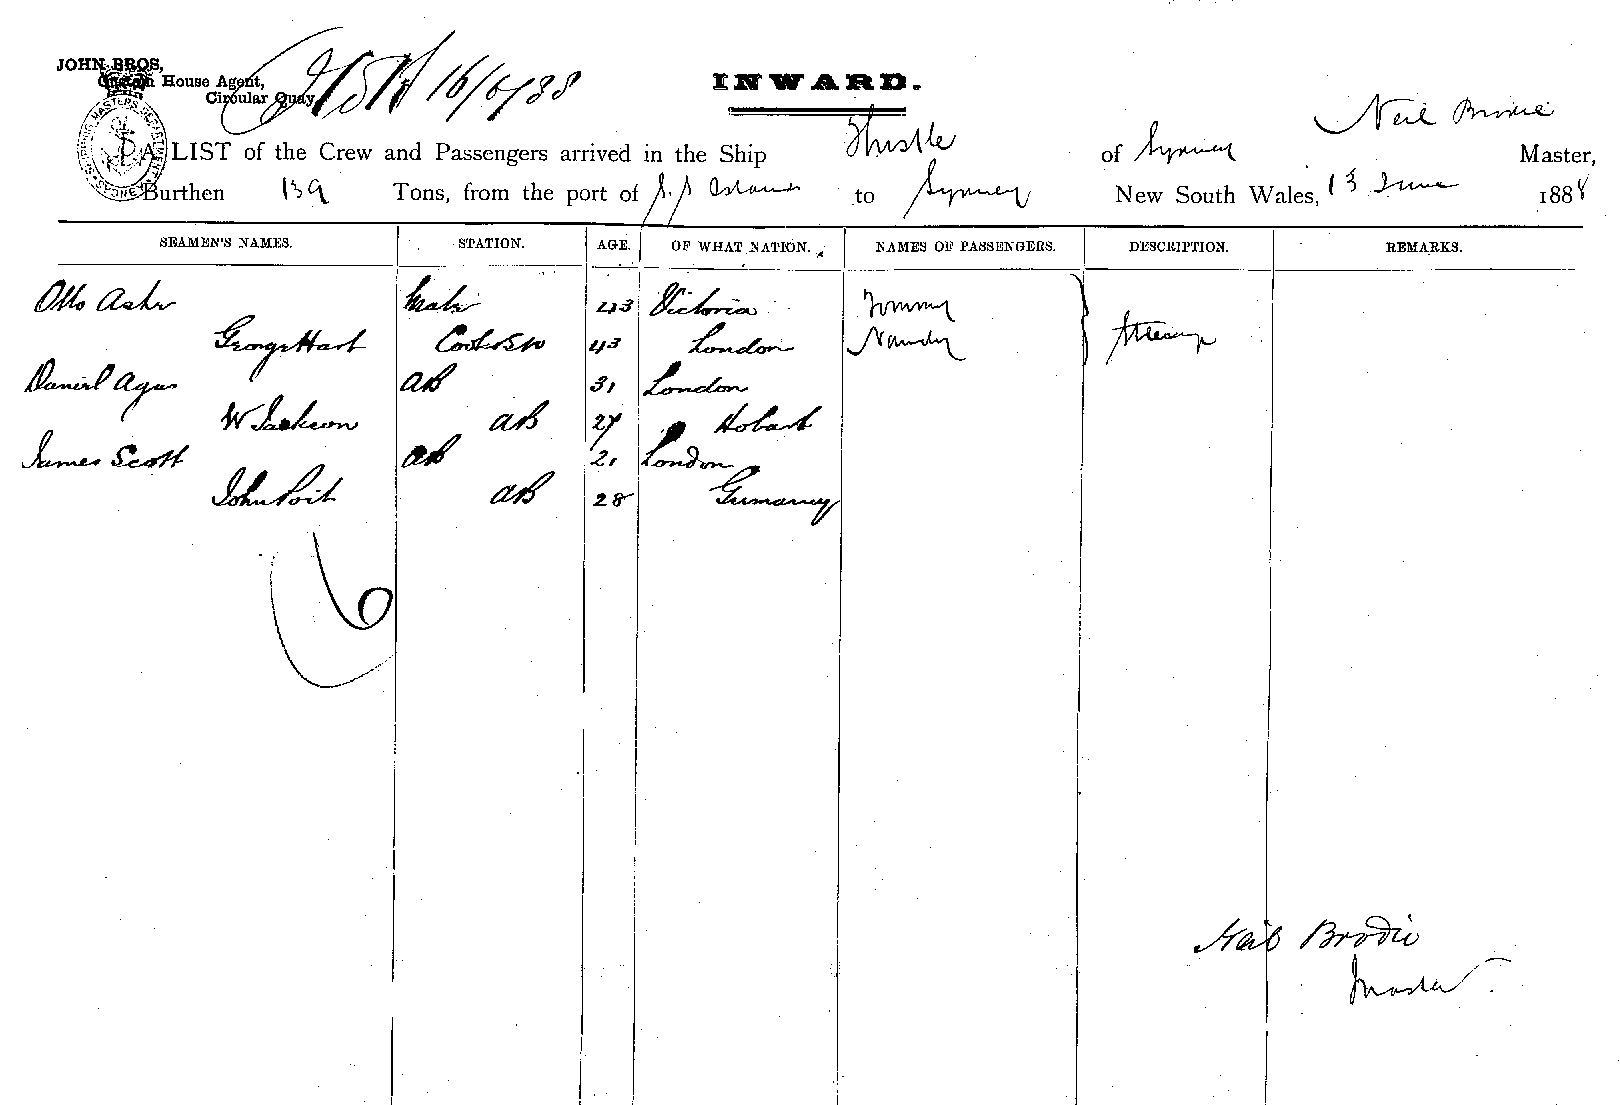 JOHN BROS,
Custom House Agent,
Circular Quay
16/6/88
INWARD.
SHIPPING MASTERS DEPARTMENT SYDNEY
Neil Brodie
A LIST of the Crew and Passengers arrived in the Ship Thistle of Sydney Master,
Burthen 139 Tons, from the port of S.S Islands to Sydney New South Wales, 13 June 1888
SEAMEN'S NAMES. STATION. AGE. OF WHAT NATION. NAMES OF PASSENGERS. DESCRIPTION. REMARKS.
Otto Mate 43 Victoria Tommy
George Hart Cook & Stw 43 London Nandy Steerage
Daniel AB 31 London
W Jackson AB 27 Hobart
James Scott AB 21 London
John AB 28 Germaney
6
Neil Brodie
Master